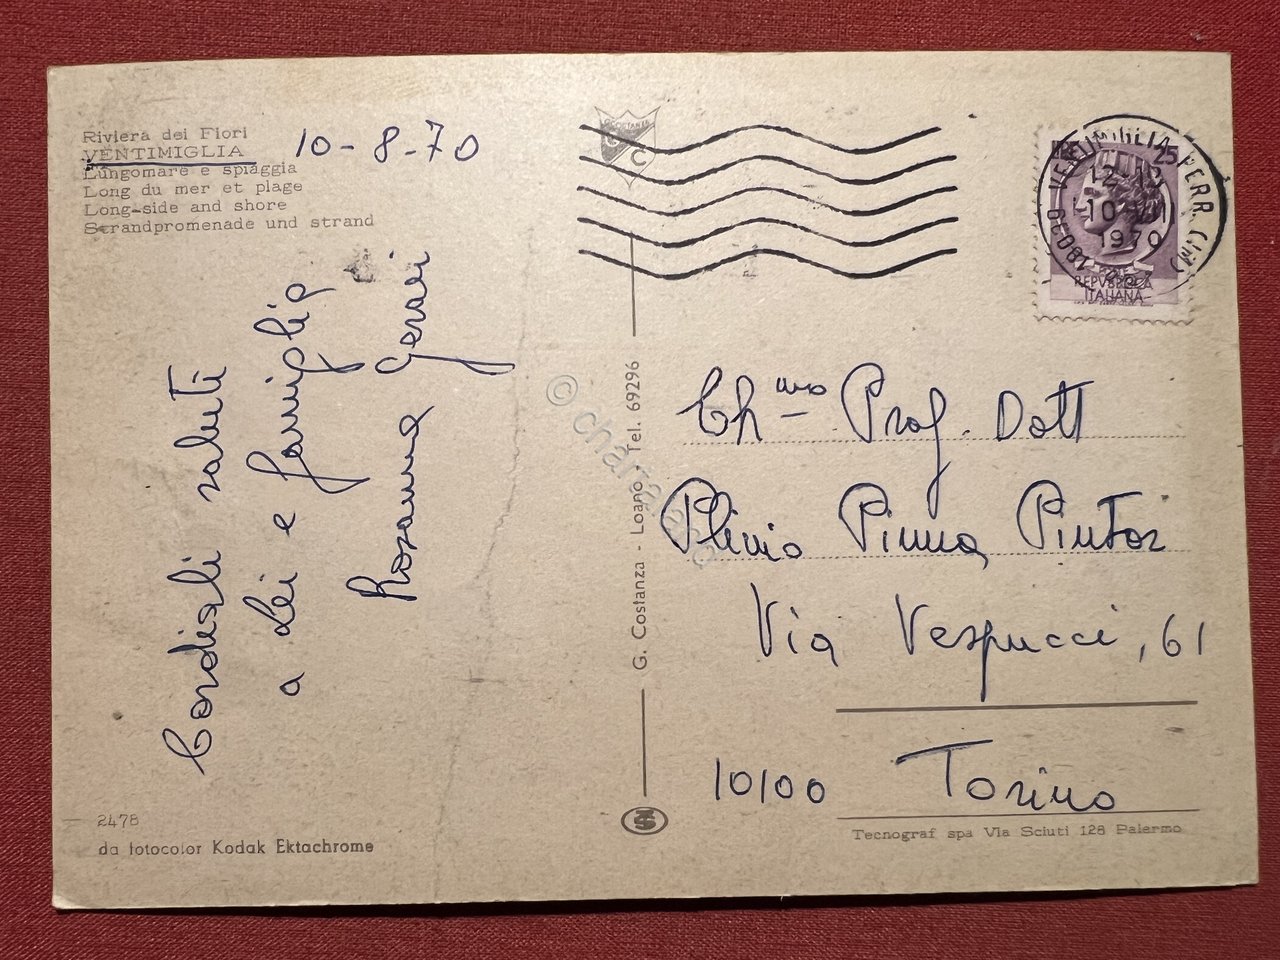 Riviera dei Fiori
VENTIMIGLIA
Lungomare e spiaggia
Long du mer et plage
Long-side and shore
Strandpromenade und strand
10-8-70
Cordiali saluti
a Lei e famiglia
Rosanna Gerari
2478
da fotocolor Kodak Ektachrome
G. Costanza - Loano - Tel. 69296
COSTANZA
G C
VENTIMIGLIA FERR. (IM)
18039
12-13
10
1970
25
REPVBBLICA
ITALIANA
Ch.mo Prof. Dott
Plinio Pinna Pintor
Via Vespucci, 61
10100 Torino
Tecnograf spa Via Sciuti 128 Palermo